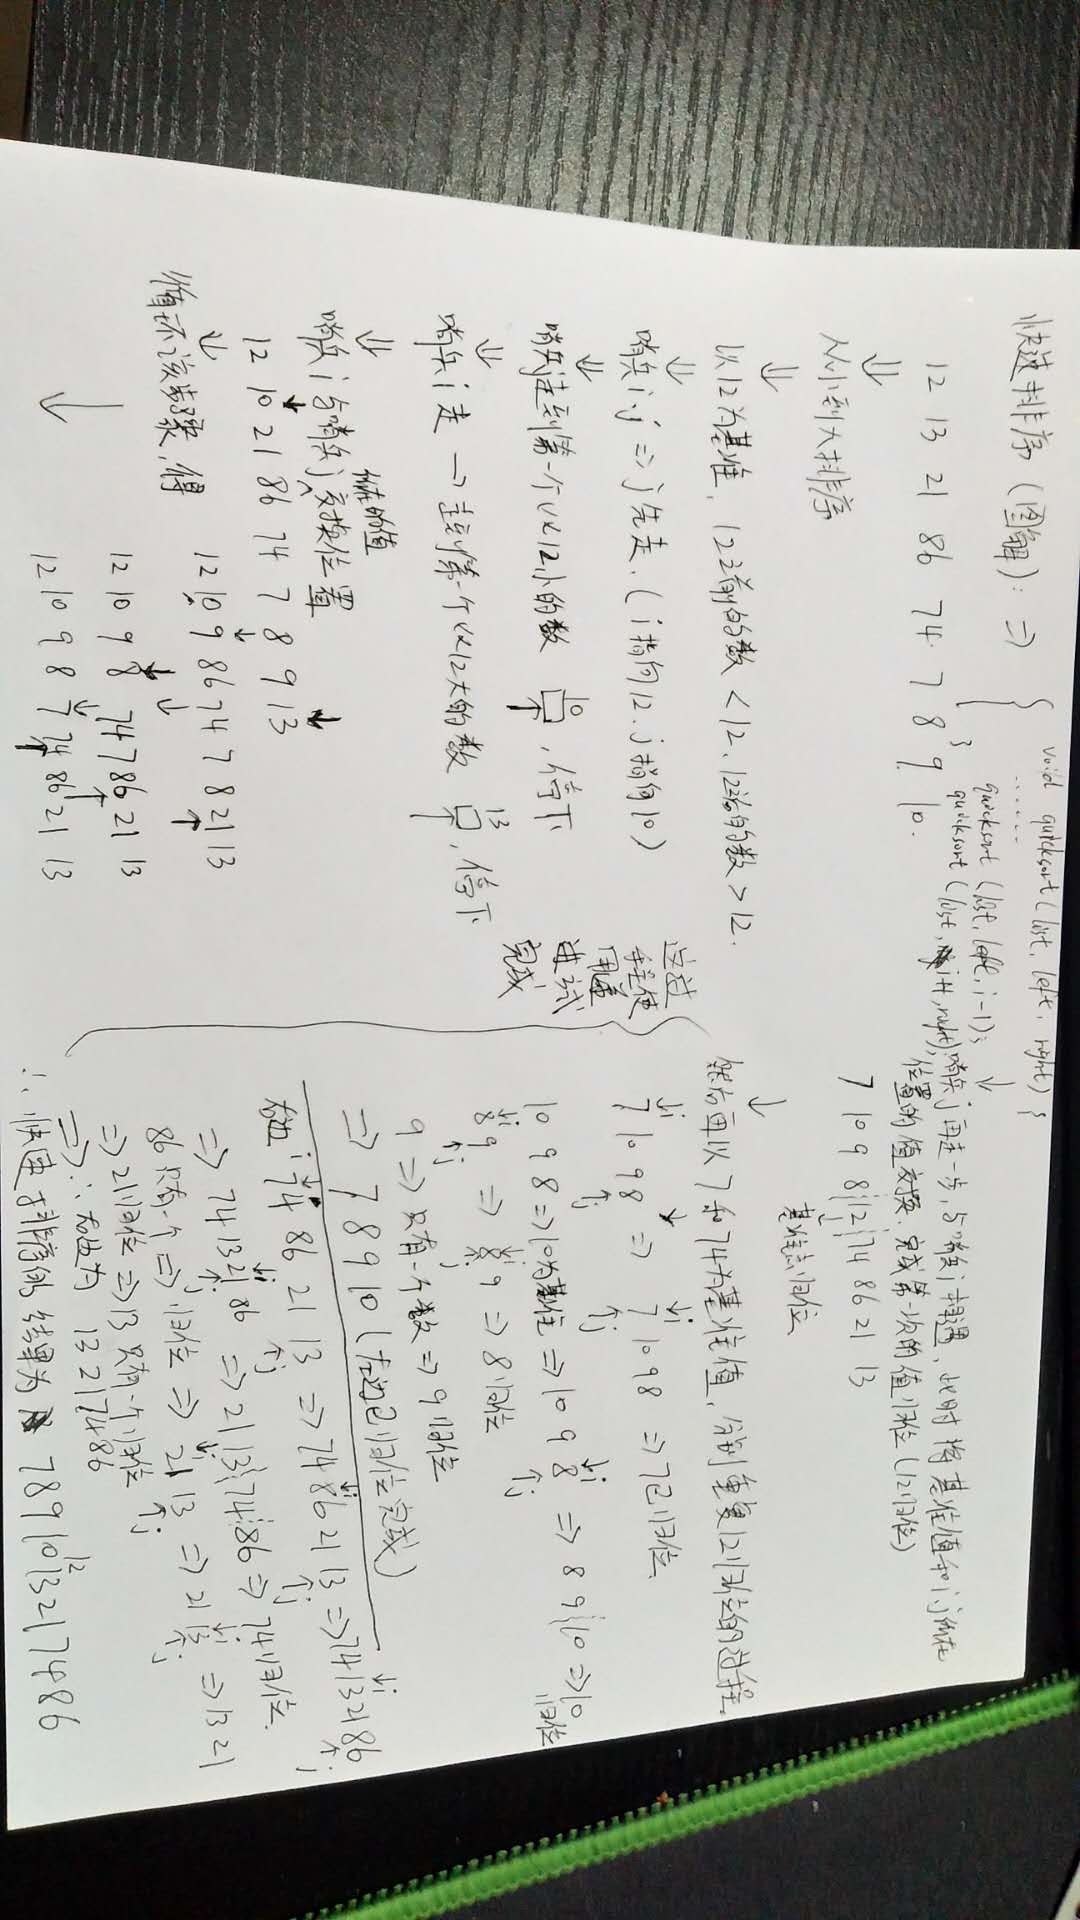 快速排序（图解）：⇒
void quicksort(list, left, right) {
......
quicksort (list, left, i-1);
quicksort (list, i+1, right);
}
12 13 21 86 74 7 8 9 10.
⇓
从小到大排序
⇓
以12为基准，12之前的数<12，12后的数>12.
⇓
哨兵i.j ⇒ j先走.（i指向12. j指向10）
⇓
哨兵j走到第一个比12小的数 10 ↑，停下
⇓
哨兵i走 → 走到第一个比12大的数 13 ↑，停下
⇓
哨兵i与哨兵j所在的值交换位置
12 10 21 86 74 7 8 9 13
⇓
循环该步骤，得
12 10 9 86 74 7 8 21 13
12 10 9 8 74 7 86 21 13
12 10 9 8 7 74 86 21 13
↓
哨兵j再走一步，与哨兵i相遇，此时将基准值和i.j所在
位置的值交换.完成第一次的值归位（12归位）
7 10 9 8 12 74 86 21 13
↓
基准点归位
↓
然后再以7和74为基准值，分别重复12归位的过程.
这过
程使
用递
进式
完成
↓i
7 10 9 8 ⇒ 7 10 9 8 ⇒ 7已归位
↑j
10 9 8 ⇒ 10为基准 ⇒ 10 9 8 ⇒ 8 9 10 ⇒ 10归位
8 9 ⇒ 8 9 ⇒ 8归位
9 ⇒ 只有一个数 ⇒ 9归位
⇒ 7 8 9 10（左边已归位完成）
右边 74 86 21 13 ⇒ 74 86 21 13 ⇒ 74 13 21 86
⇒ 74 13 21 86 ⇒ 21 13 74 86 ⇒ 74归位.
86只有一个 ⇒ 归位 ⇒ 21 13 ⇒ 21 13 ⇒ 13 21
⇒ 21归位 ⇒ 13只有一个归位
⇒ ∴ 右边为 13 21 74 86
∴ 快速排序的结果为 7 8 9 10 12 13 21 74 86